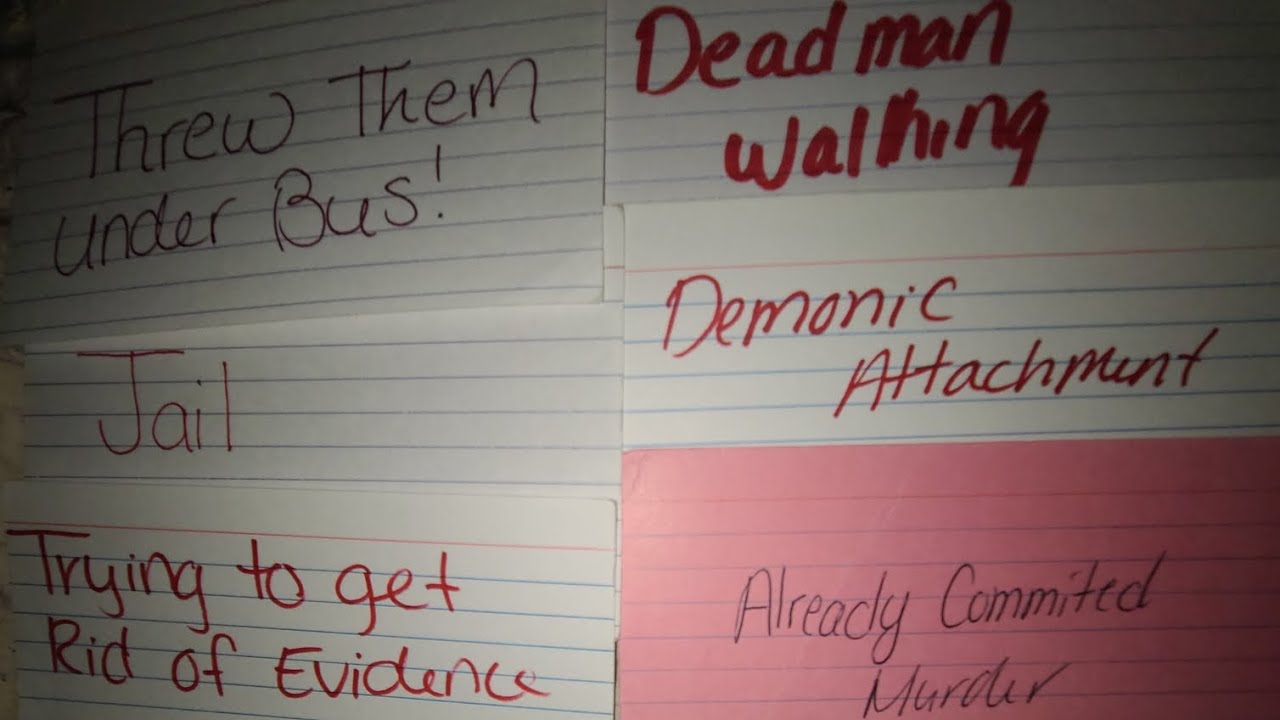 Threw Them
Under Bus!
Dead man
Walking
Jail
Demonic
Attachment
Trying to get
Rid of Evidence
Already Commited
Murder